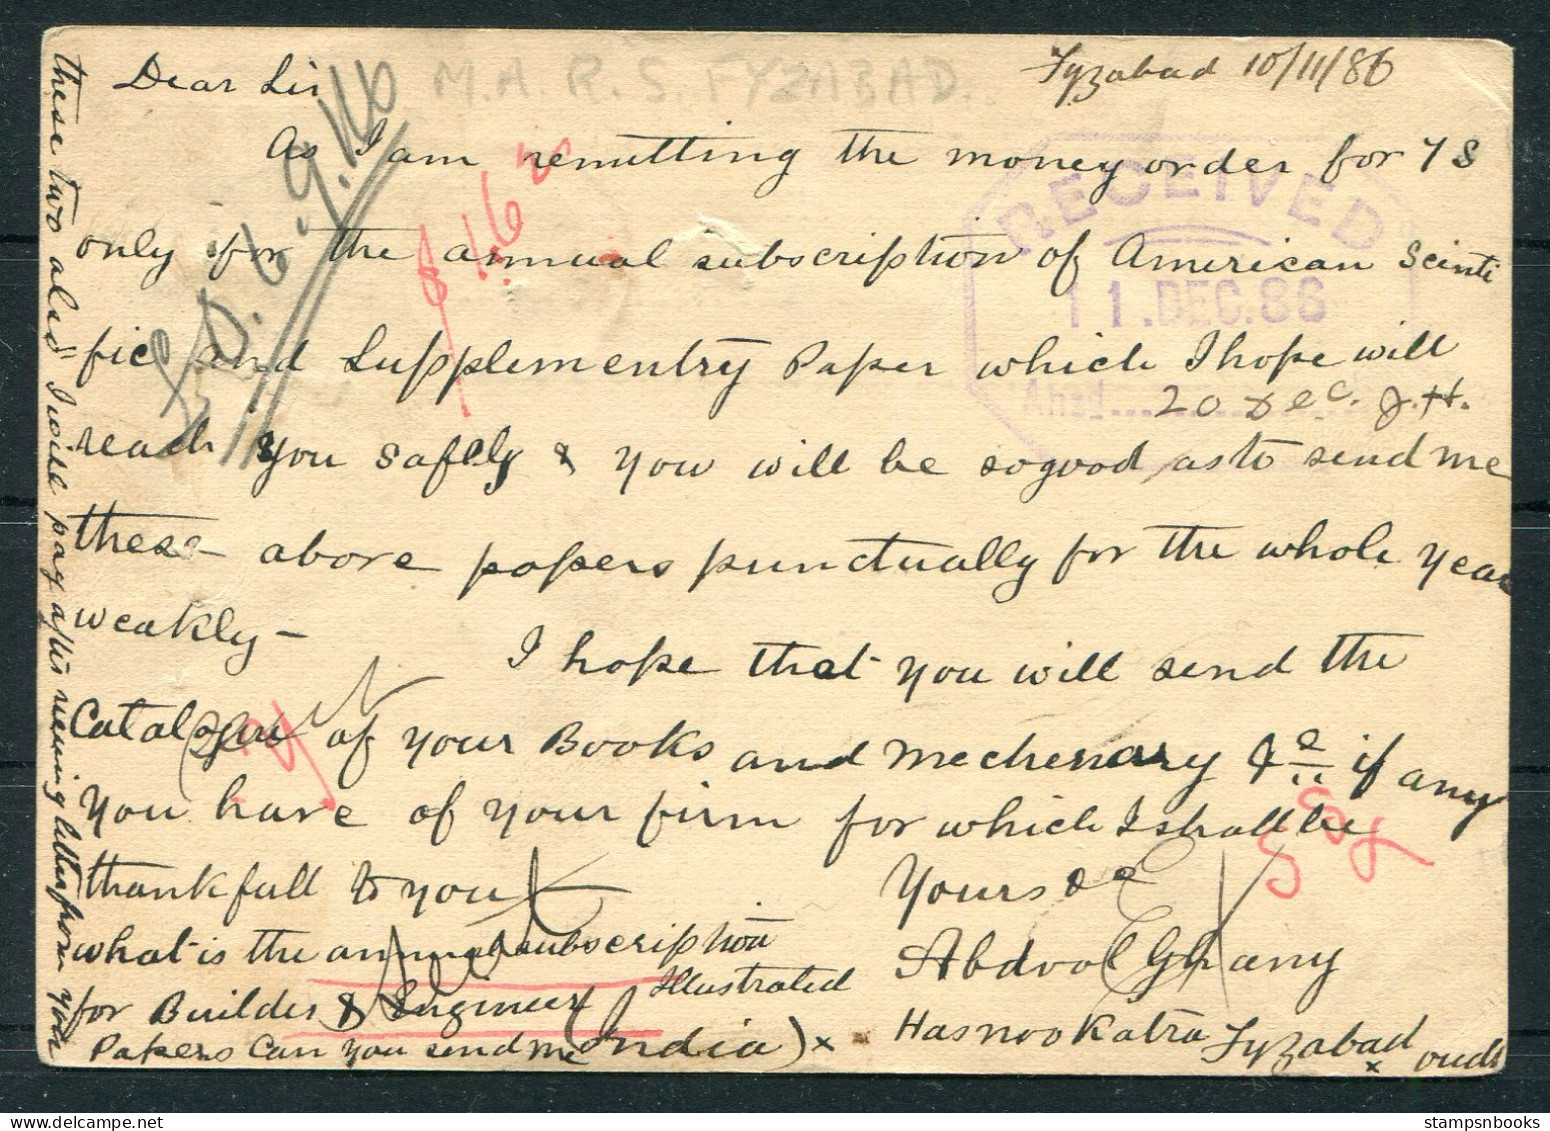 Fyzabad 10/11/86
M. A. R. S. FYZABAD.
Dear Sir
As I am remitting the money order for 7 S
only for the annual subscription of American Scinti
fic and Supplementry Paper which I hope will
reach you safely & you will be so good as to send me
these above papers punctually for the whole year
weakly -
I hope that you will send the
Catalogue of your Books and Mechenary &c if any
you have of your firm for which I shall be
thankfull to you
what is the annual subscription
for Builder & Engineer Illustrated
Papers Can you send me
Yours &c
Abdool Ghany
Hasnoo Katra Fyzabad oudh
(India) x
these two also I will pay after
letter from you
RECEIVED
11.DEC.86
Ansd
20 Dec. J.H.
$16
stampsnbooks